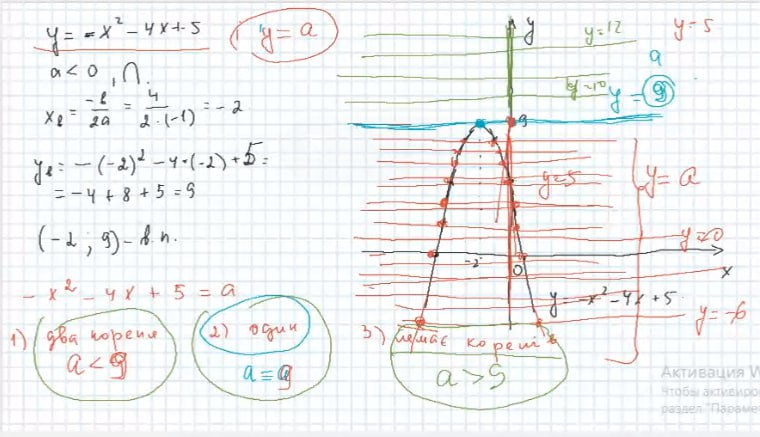 y = -x² - 4x + 5
y = a
a < 0, ∩.
xв = -b/2a = 4/2·(-1) = -2
yв = -(-2)² - 4·(-2) + 5 =
= -4 + 8 + 5 = 9
(-2 ; 9) - в.п.
-x² - 4x + 5 = a
1) два кореня
a < 9
2) один
a = 9
3) немає коренів
a > 9
y
y = 12
y = 5
a
y = 10
y = 9
9
y = 5
y = a
y = 0
-2
0
x
y = -x² - 4x + 5
y = -6
Активация W
Чтобы активиро
раздел "Параме